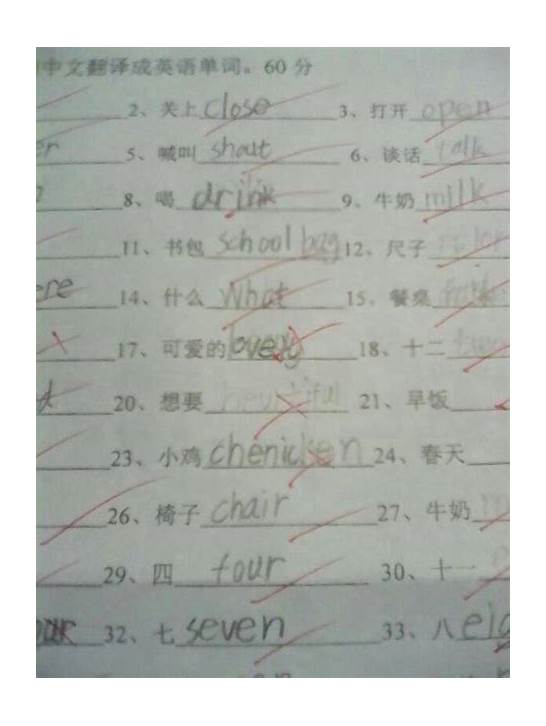 中文翻译成英语单词。60 分
2、关上 close 3、打开 open
5、喊叫 shout 6、谈话 talk
8、喝 drink 9、牛奶 milk
11、书包 school bag 12、尺子
14、什么 What 15、餐桌
17、可爱的 18、十二
20、想要 21、早饭
23、小鸡 chenicken 24、春天
26、椅子 chair 27、牛奶
29、四 four 30、十一
32、七 seven 33、八 eig